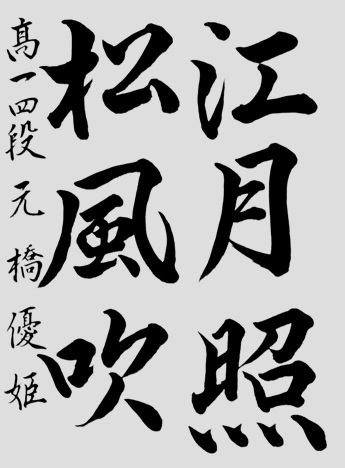 江月照
松風吹
髙一四段 元橋優姫